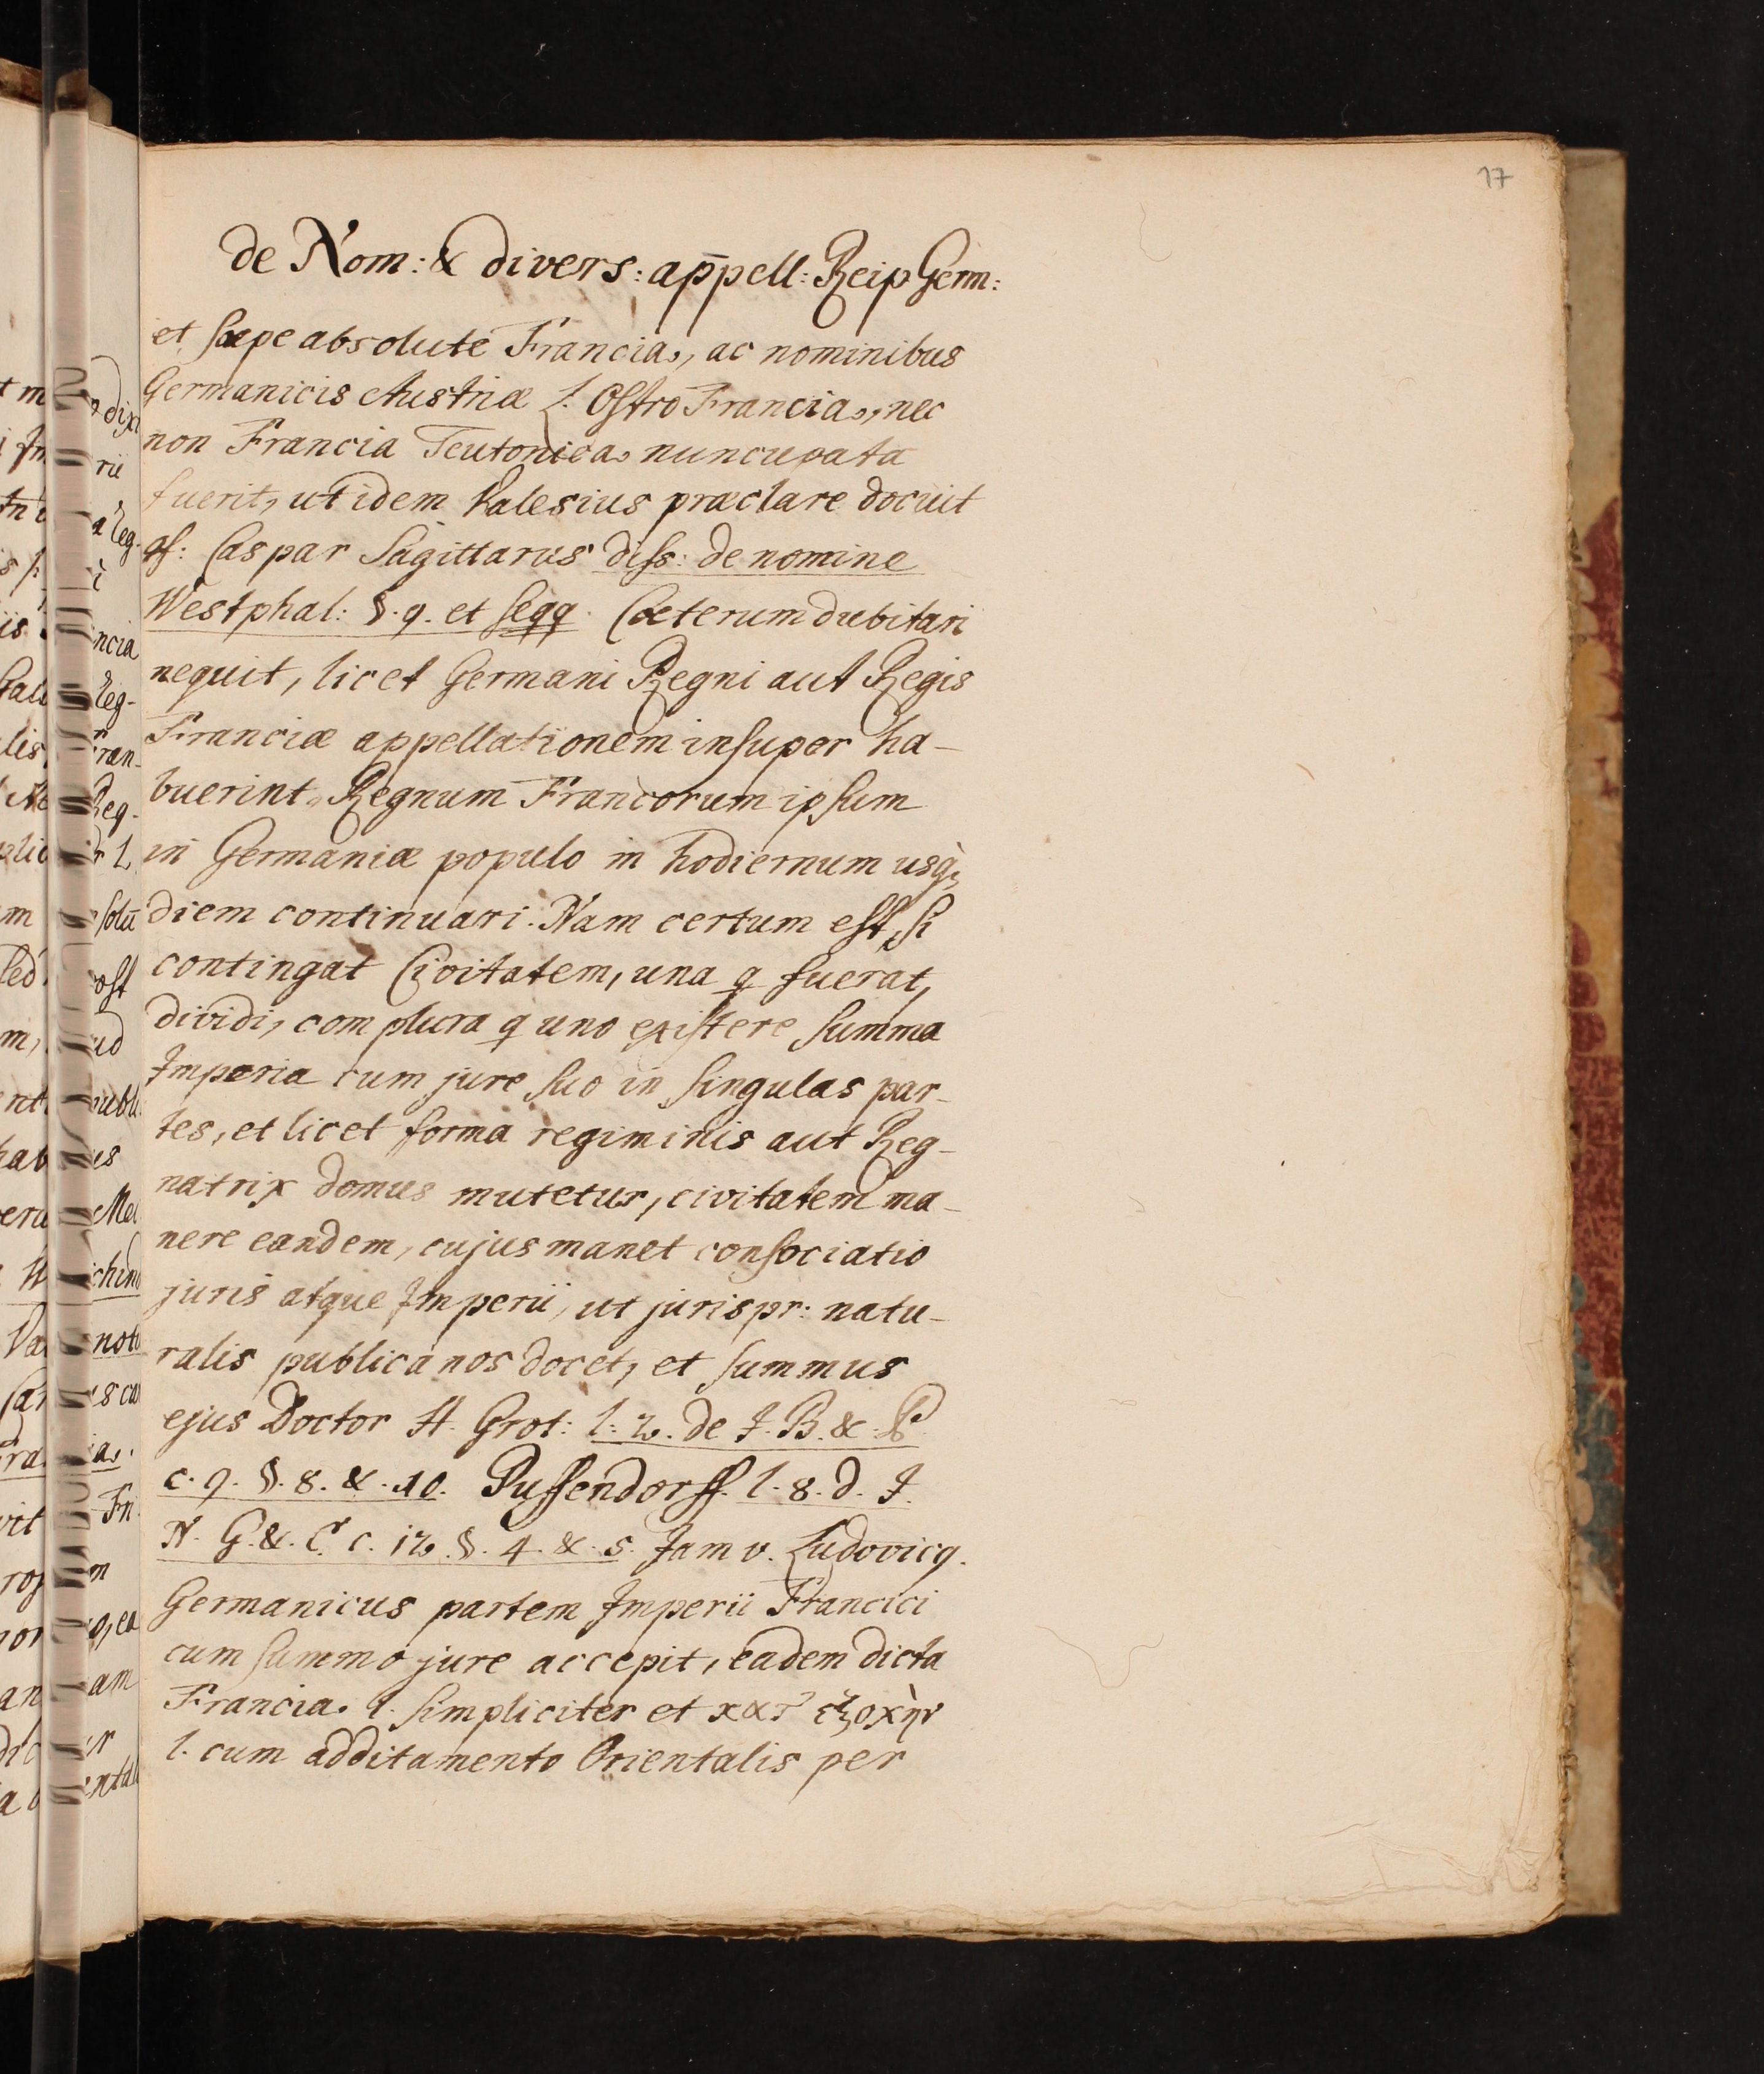 17
de Nom: & divers: appell: Reip Germ:
et sæpe absolute Francia, ac nominibus
Germanicis Austriæ l. OstroFrancia, nec
non Francia Teutonica nuncupata
fuerit, ut idem Valesius præclare docuit
cf: Caspar Sagittarus diss: de nomine
Westphal: §. 9. et seqq. Cæterum dubitari
nequit, licet Germani Regni aut Regis
Franciæ appellationem insuper ha-
buerint, Regnum Francorum ipsum
in Germaniæ populo in hodiernum usq;
diem continuari. Nam certum est, si
contingat Civitatem, una q fuerat,
dividi, complura q uno existere summa
Imperia cum jure suo in singulas par-
tes, et licet forma regiminis aut Reg-
natrix domus mutetur, civitatem ma-
nere eandem, cujus manet consociatio
juris atque Imperii, ut jurispr: natu-
ralis publica nos docet, et summus
ejus Doctor H. Grot: l. 2. de J. B. & P.
c. 9. §. 8. & 10. Puffendorff. l. 8. d. J.
N. G. & C. c. 12. §. 4. & 5. Jam v. Ludovicq.
Germanicus partem Imperii Francici
cum summo jure accepit, eadem dicta
Francia l. simpliciter et κατ' ἐξοχὴν
l. cum additamento Orientalis per